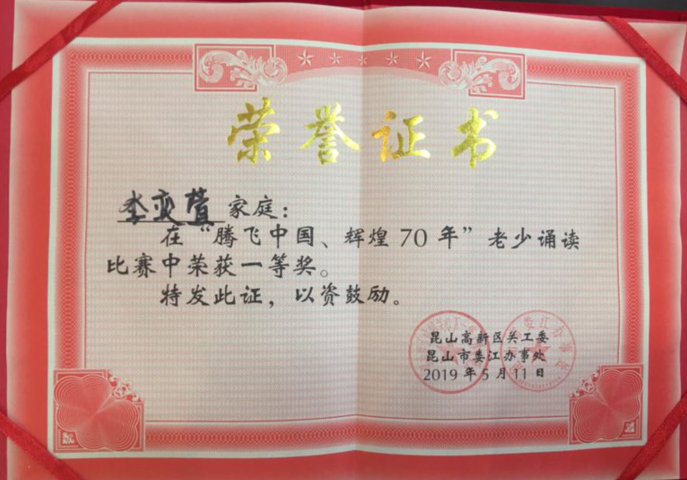 荣誉证书
李奕萱 家庭:
在“腾飞中国、辉煌70年”老少诵读
比赛中荣获一等奖。
特发此证,以资鼓励。
昆山高新区关工委
昆山市娄江办事处
2019年5月11日